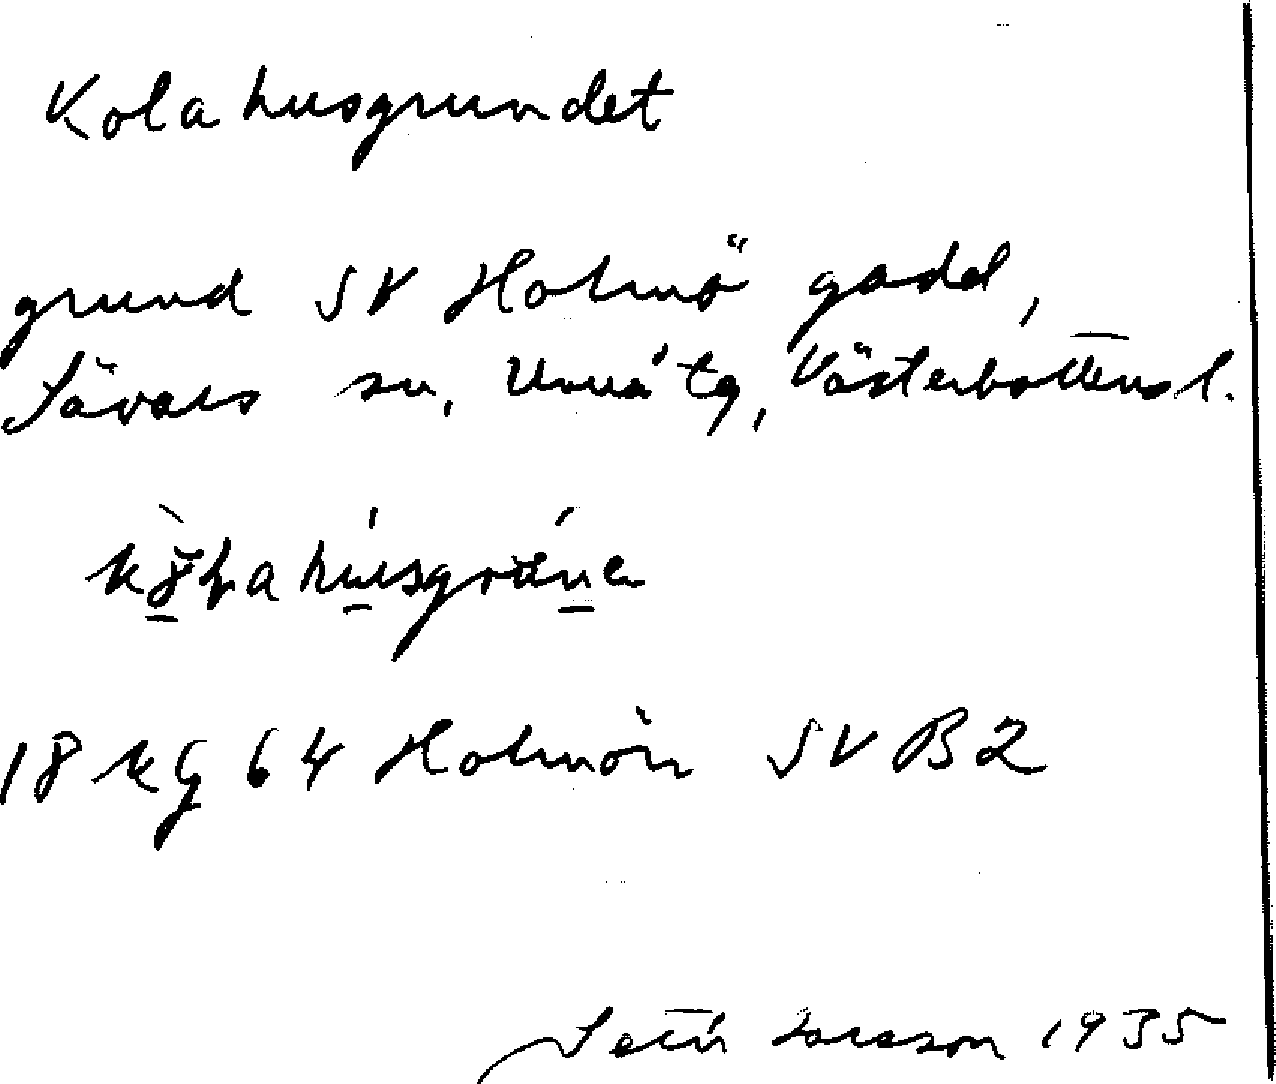 Kolahusgrundet
grund SV Holmö gadd,
Sävars sn, Umeå tg, Västerbottens l.
18 kg 64 Holmön SV B2
SetH Larsson 1935